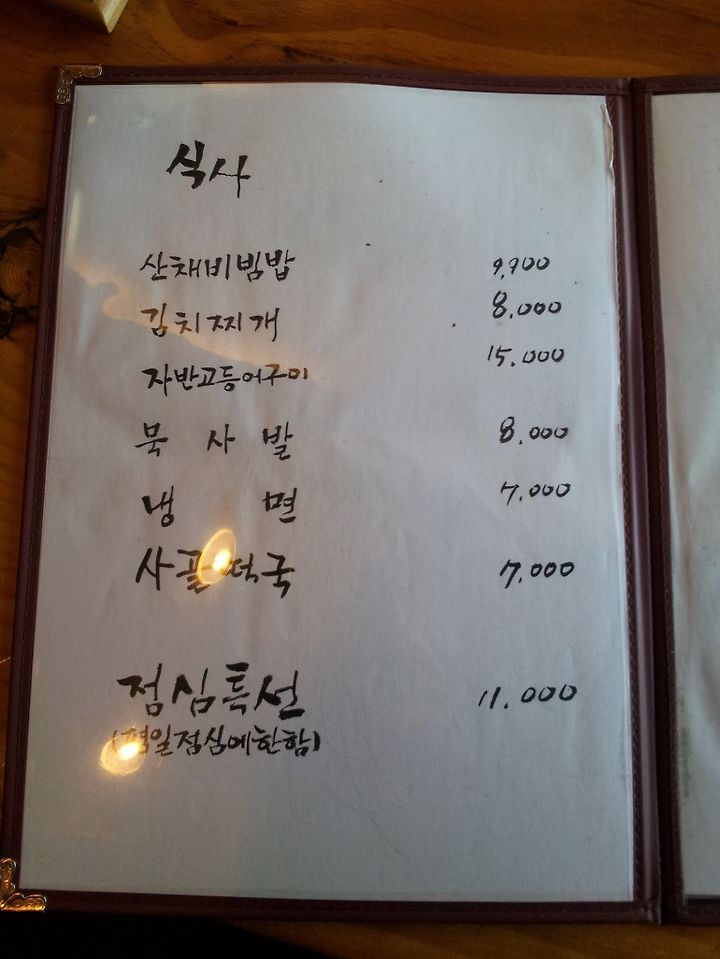 식사
산채비빔밥 9,900
김치찌개 8.000
자반고등어구이 15.000
묵 사 발 8.000
냉 면 7.000
사골떡국 7.000
점심특선 11.000
(평일점심에한함)